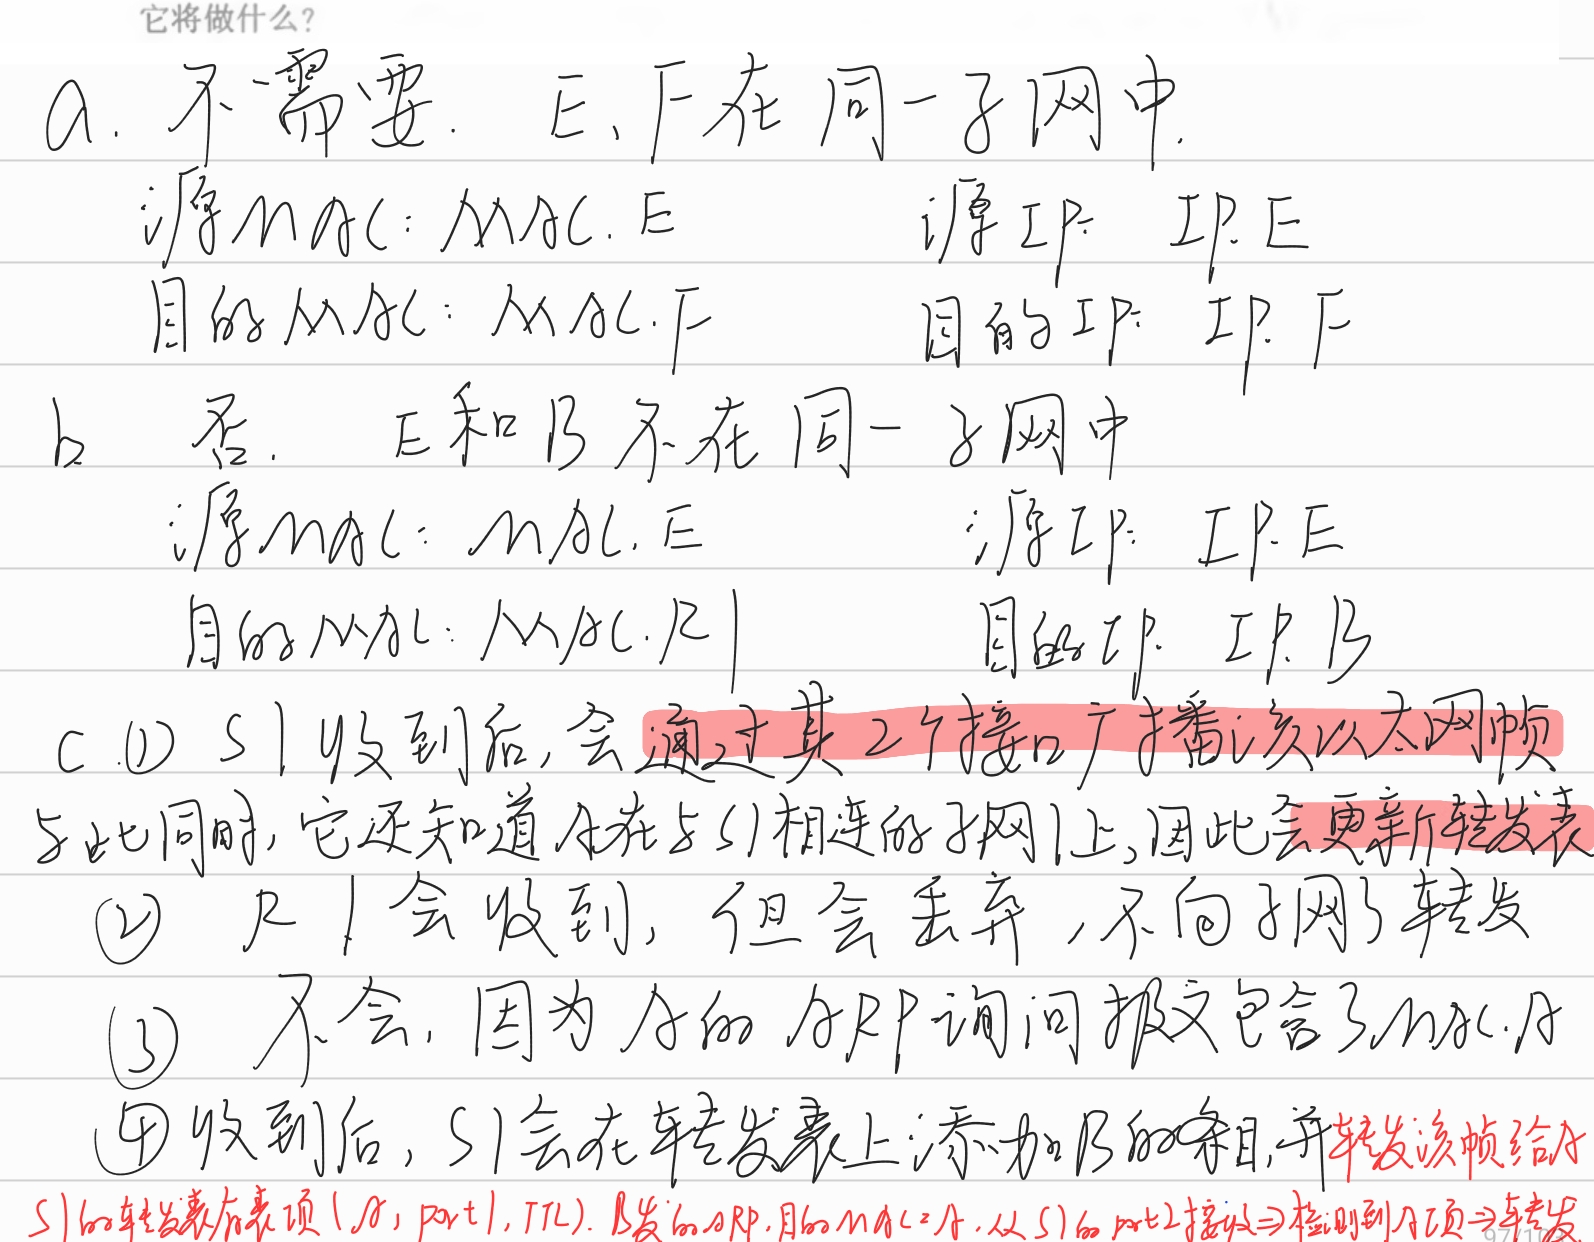 它将做什么?
a. 不需要. E、F在同一子网中.
源MAC: MAC.E 源IP: IP.E
目的MAC: MAC.F 目的IP: IP.F
b 否. E和B不在同一子网中
源MAC: MAC.E 源IP: IP.E
目的MAC: MAC.R1 目的IP. IP.B
c.① S1收到后,会通过其2个接口广播该以太网帧
与此同时,它还知道A在与S1相连的子网1上,因此会更新转发表
② R1会收到,但会丢弃,不向子网3转发
③ 不会,因为A的ARP询问报文包含了MAC.A
④收到后,S1会在转发表上添加B的条目,并转发该帧给A
S1的转发表有表项(A, port1, TTL). B发的ARP.目的MAC=A.从S1的port2接收⇒检测到A项⇒转发